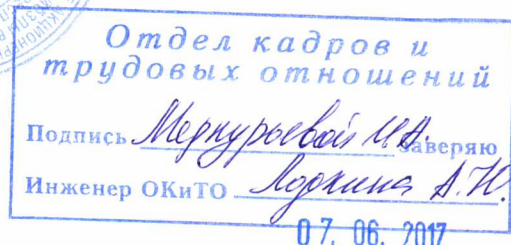 Отдел кадров и
трудовых отношений
Подпись Меркурьевой И.А. заверяю
Инженер ОКиТО Лоскина А.Н.
07. 06. 2017